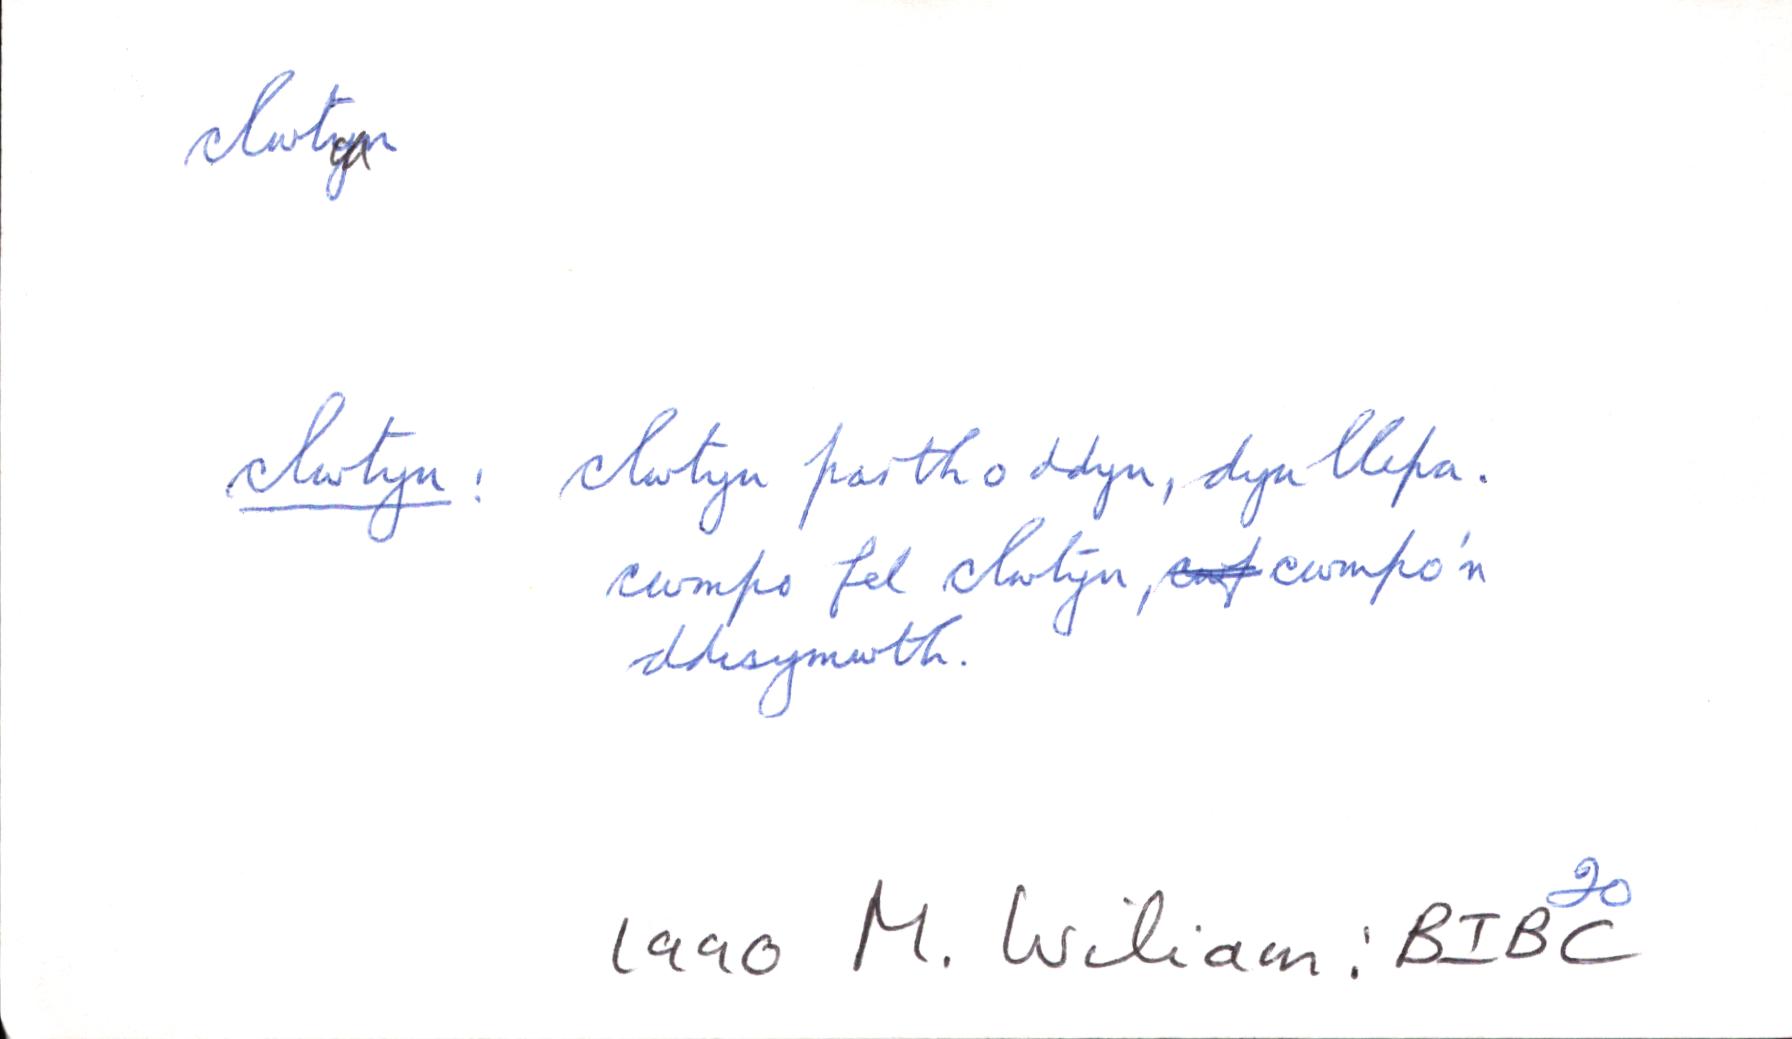 clwtyn
clwtyn: clwtyn parth o ddyn, dyn llipa.
cwmpo fel clwtyn, cwmpo'n
ddisymwth.
20
1990 M. Wiliam: BIBC